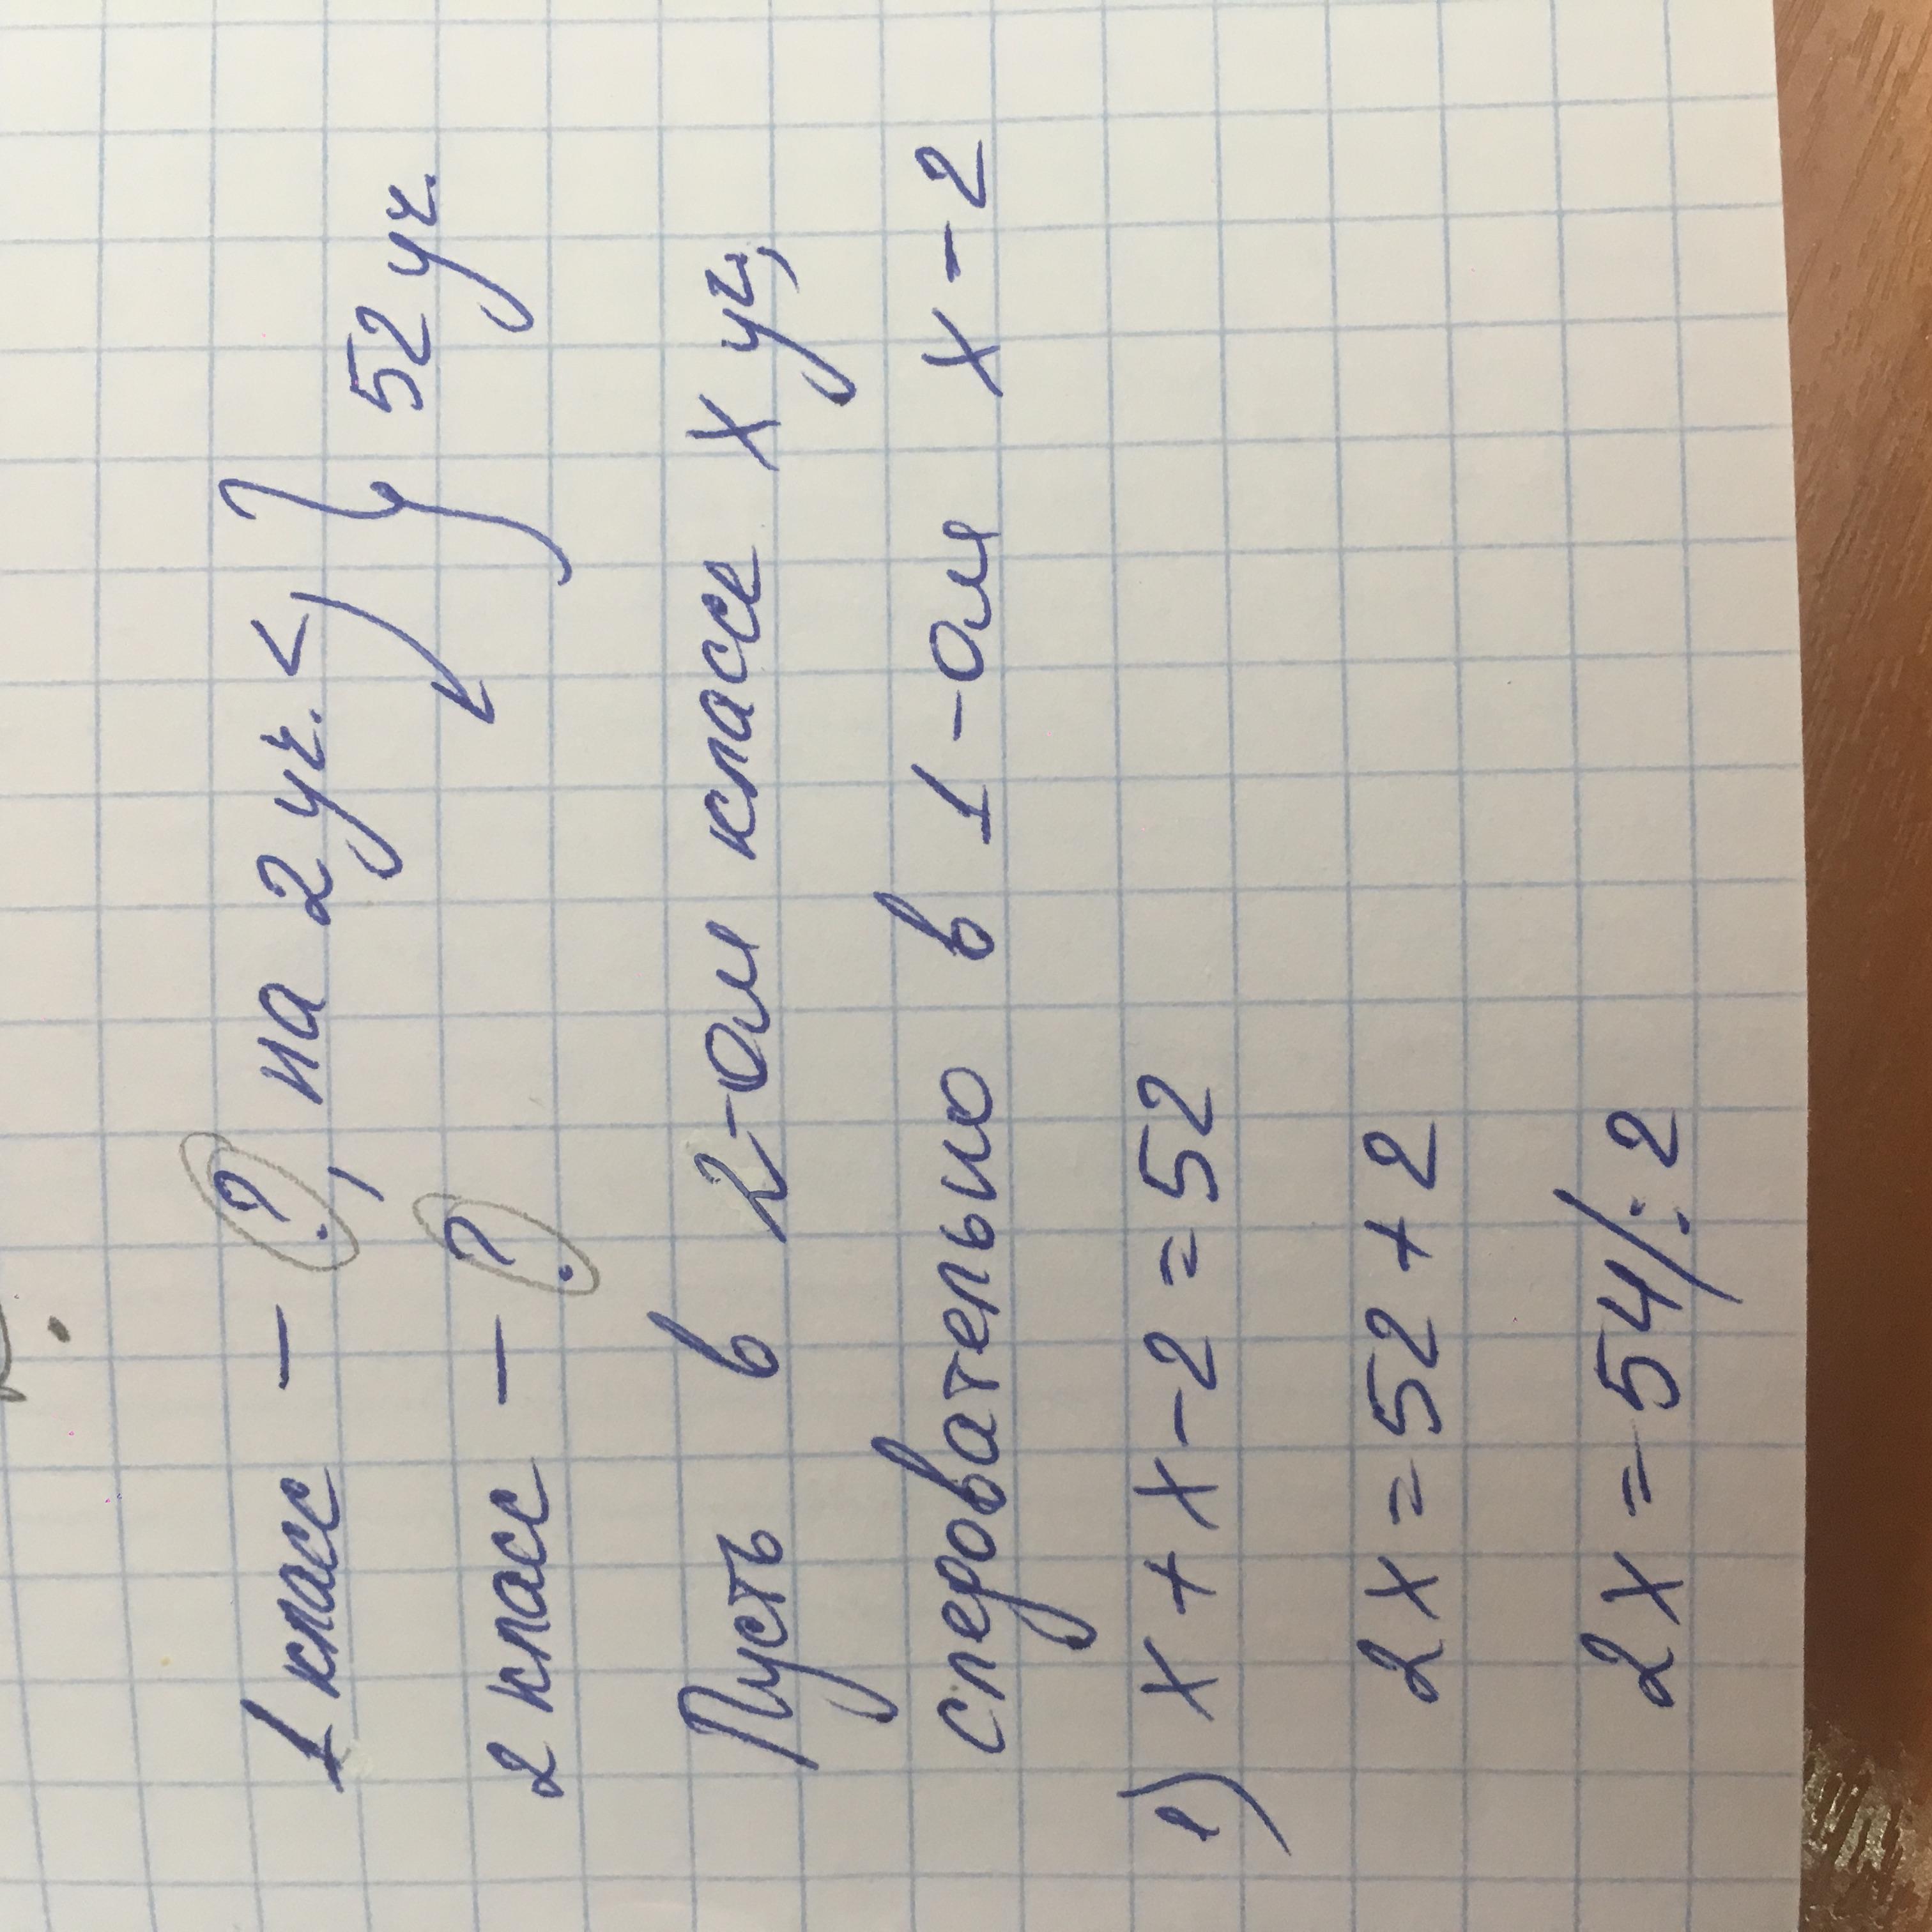 1 класс – ?, на 2 уч. < } 52 уч.
2 класс – ?
Пусть в 2-ом классе х уч,
следовательно в 1-ом х-2
1) х + х - 2 = 52
2х = 52 + 2
2х = 54 / : 2